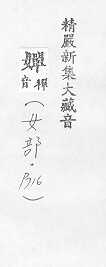 精嚴新集大藏音
嬋 禪音
(女部·P.16)